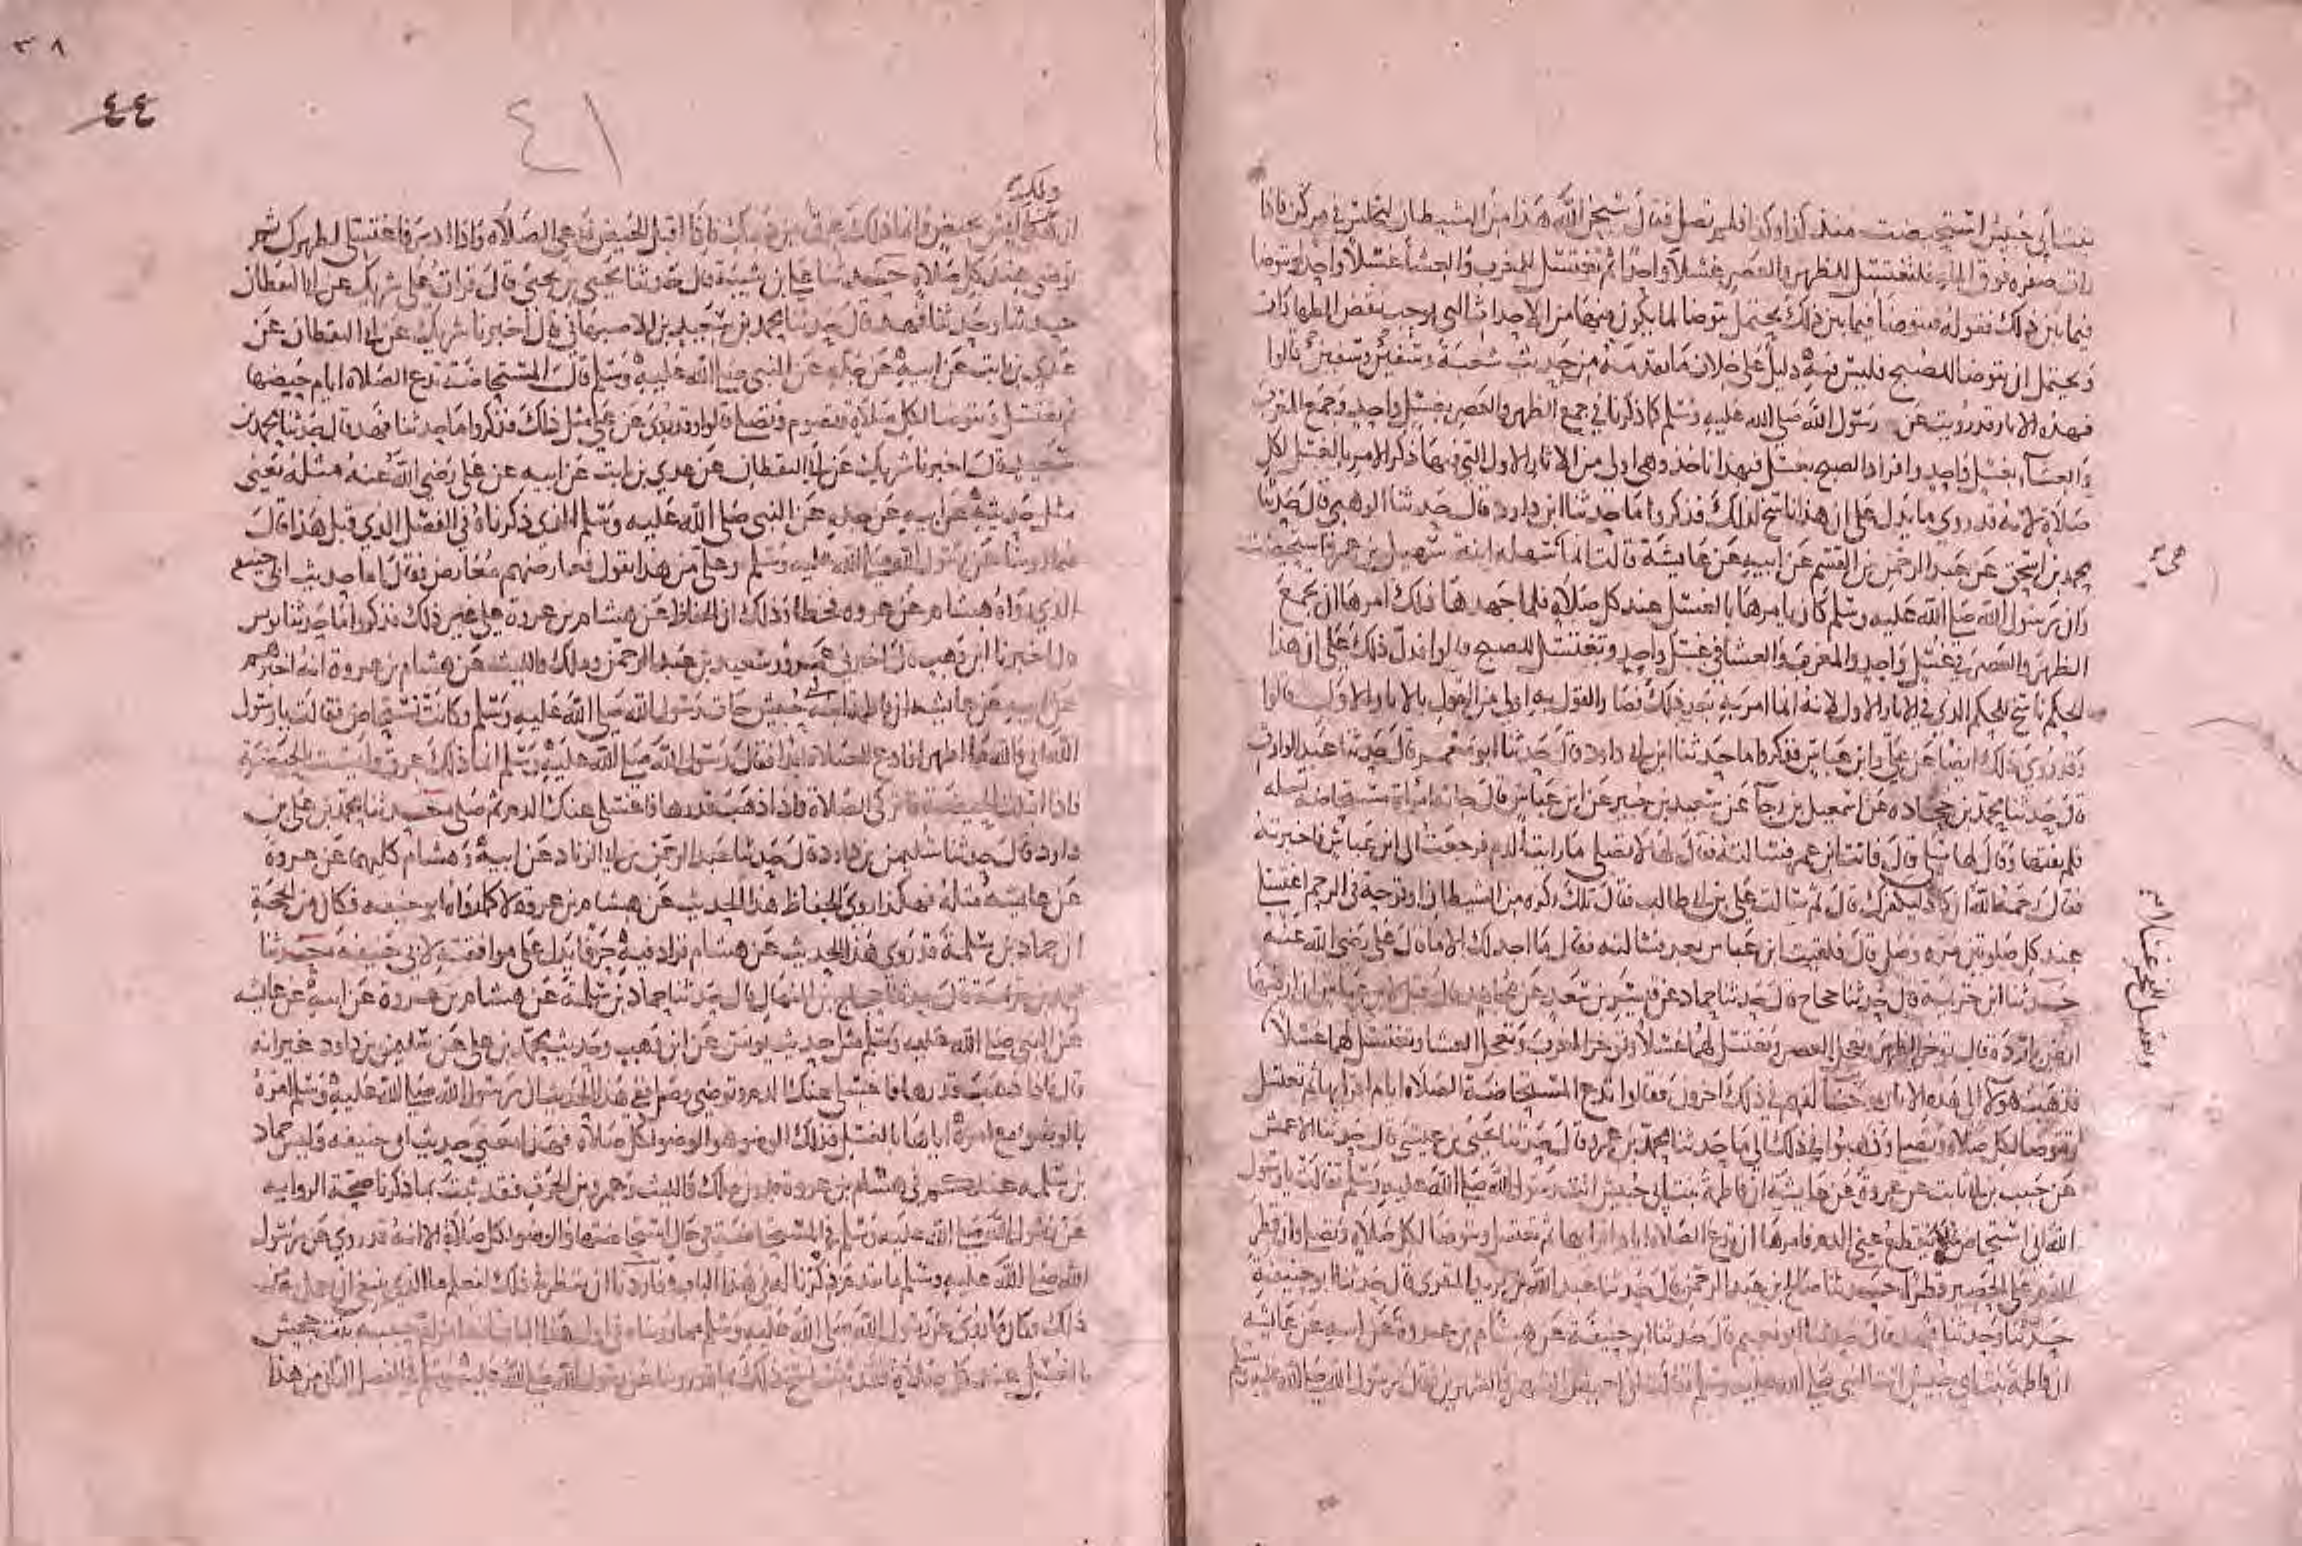 بنت أبي حبيش استحيضت منذ كذا وكذا فلم تصل فقال سبحن الله هذا من الشيطان لتجلس في مركن فاذا
رات صفره فوق الماء فلتغتسل للظهر والعصر غسلا واحدا ثم تغتسل للمغرب والعشا غسلا واحدا وتتوضا
فيما بين ذلك فقوله وتتوضا فيما بين ذلك يحتمل تتوضا لما يكون منها من الاحداث التي يوجب نقض الطهارات
ويحتمل ان تتوضا للصبح فليس فيه دليل على خلاف ما تقدمه من حديث شعبة وسفين قالوا
فهذه الاثار قد رويت عن رسول الله صلى الله عليه وسلم كما ذكرنا في جمع الظهر والعصر بغسل واحد وجمع المغرب
والعشاء بغسل واحد وافراد الصبح بغسل فبهذا ناخذ وهي اولى من الاثار الاول التي فيها ذكر الامر بالغسل لكل
صلاة لانه قد روي ما يدل على ان هذا ناسخ لذلك فذكروا ما حدثنا ابن ابي داود قال حدثنا الوهبي قال حدثنا
محمد بن اسحق عن عبد الرحمن بن القسم عن ابيه عن عايشة قالت انما سهله ابنة سهيل بن عمرو استحيضت
وان رسول الله صلى الله عليه وسلم كان يامرها بالغسل عند كل صلاة فلما جهدها ذلك امرها ان تجمع
الظهر والعصر في غسل واحد والمغرب والعشا في غسل واحد وتغتسل للصبح قالوا فدل ذلك على ان هذا
الحكم ناسخ للحكم الذي في الاثار الاول لانه انما امر به بعد ذلك فصار القول به اولى من القول بالاثار الاول قالوا
وقد روي ذلك ايضا عن علي وابن عباس فذكروا ما حدثنا ابن ابي داود قال حدثنا ابو معمر قال حدثنا عبد الوارث
قال حدثنا محمد بن جحادة عن اسمعيل بن رجا عن سعيد بن جبير عن ابن عباس قال جاته امراة مستحاضة تسله
فلم يفتها وقال لها سلي قال فاتت ابن عمر فسالته فقال لها لا تصلي ما رايت الدم فرجعت الى ابن عباس فاخبرته
فقال رحمه الله ان كاد ليكفرك قال ثم سالت علي بن ابي طالب فقال تلك ركزه من الشيطان او قرحة في الرحم اغتسلي
عند كل صلوتين مره وصلي قال فلقيت ابن عباس بعد فسالته فقال ما اجد لك الا ما قال علي رضي الله عنه
حدثنا ابن خزيمة قال حدثنا حجاج قال حدثنا حماد عن قيس بن سعد عن مجاهد قال قيل لابن عباس ان ارضها
ارض باردة قال توخر الظهر وتعجل العصر وتغتسل لهما غسلا وتوخر المغرب وتعجل العشا وتغتسل لهما غسلا
فذهب هولا الى هذه الاثار وخالفهم في ذلك اخرون فقالوا تدع المستحاضة الصلاة ايام اقرايها ثم تغتسل
وتتوضا لكل صلاة وتصلي وذهبوا في ذلك الى ما حدثنا محمد بن عمرو قال حدثنا يحيى بن عيسى قال حدثنا الاعمش
عن حبيب بن ابي ثابت عن عروة عن عايشة ان فاطمة بنت ابي حبيش اتت رسول الله صلى الله عليه وسلم فقالت يا رسول
الله اني استحاض فلا ينقطع عني الدم فامرها ان تدع الصلاة ايام اقرايها ثم تغتسل وتتوضا لكل صلاة وتصلي وان قطر
الدم على الحصير قطرا حدثنا صالح بن عبد الرحمن قال حدثنا عبد الله بن يزيد المقري قال حدثنا ابو حنيفة
حدثنا وحدثنا فهد قال حدثنا ابو نعيم قال حدثنا ابو حنيفة عن هشام بن عروة عن ابيه عن عائشه
ان فاطمة بنت ابي حبيش اتت النبي صلى الله عليه وسلم فقالت اني احيض الشهر والشهرين فقال رسول الله صلى الله عليه وسلم
وتغتسل للفجر غسلا
٣٨
٤٤
٤١
ولكنه
ان ليس بحيض وانما ذلك عرق من دمك فاذا اقبل الحيض فدعي الصلاه واذا ادبر فاغتسلي لطهرك ثم
توضي عند كل صلاة حدثنا علي بن شيبة قال حدثنا يحيى بن يحيى قال قرات على شريك عن ابي اليقظان
حدثنا وحدثنا فهد قال حدثنا محمد بن سعيد بن الاصبهاني قال اخبرنا شريك عن ابي اليقظان عن
عدي بن ثابت عن ابيه عن جده عن النبي صلى الله عليه وسلم قال المستحاضة تدع الصلاه ايام حيضها
ثم تغتسل وتتوضا لكل صلاة وتصوم وتصلي قالوا وقد روي عن علي مثل ذلك فذكروا ما حدثنا فهد قال حدثنا محمد بن
سعيد قال اخبرنا شريك عن ابي اليقظان عن عدي بن ثابت عن ابيه عن علي رضي الله عنه مثله يعني
مثل حديثه عن ابيه عن جده عن النبي صلى الله عليه وسلم الذي ذكرناه في الفصل الذي قبل هذا قال
فيما روينا عن رسول الله صلى الله عليه وسلم وعلي من هذا القول فعارضهم معارض فقال اما حديث ابي حنيفه
الذي رواه هشام عن عروه فخطا وذلك ان الحفاظ عن هشام بن عروة على غير ذلك فذكروا ما حدثنا يونس
قال اخبرنا ابن وهب قال اخبرني عمرو وسعيد بن عبد الرحمن ومالك والليث عن هشام بن عروة انه اخبرهم
عن ابيه عن عايشه ان فاطمة ابنة ابي حبيش جات رسول الله صلى الله عليه وسلم وكانت تستحاض فقالت يا رسول
الله اني والله ما اطهر افادع الصلاة ابدا فقال رسول الله صلى الله عليه وسلم انما ذلك عرق وليست الحيضة
فاذا اقبلت الحيضة فاتركي الصلاة فاذا ذهب قدرها فاغتسلي عنك الدم ثم صلي حدثنا محمد بن علي بن
داود قال حدثنا سليمن بن داود قال حدثنا عبد الرحمن بن ابي الزناد عن ابيه وهشام كليهما عن عروة
عن عايشه مثله فهكذا روى الحفاظ هذا الحديث عن هشام بن عروة لا كما رواه ابو حنيفه فكان من الحجة
ان حماد بن سلمة قد روى هذا الحديث عن هشام فزاد فيه حرفا يدل على موافقته لابي حنيفة حدثنا
محمد بن خزيمة قال حدثنا حجاج بن المنهال قال حدثنا حماد بن سلمة عن هشام بن عروة عن ابيه عن عايشه
عن النبي صلى الله عليه وسلم مثل حديث يونس عن ابن وهب وحديث محمد بن علي عن سليمن بن داود غير انه
قال فاذا ذهب قدرها فاغتسلي عنك الدم وتوضي وصلي ففي هذا الحديث ان رسول الله صلى الله عليه وسلم امره
بالوضوء مع امره اياها بالغسل فذلك الوضو هو الوضو لكل صلاة فهذا معنى حديث ابي حنيفه وليس حماد
بن سلمه عندكم في هشام بن عروة بدون ملك والليث وعمرو بن الحرث فقد ثبت بما ذكرنا صحة الروايه
عن رسول الله صلى الله عليه وسلم في المستحاضة في حال استحاضتها الوضو لكل صلاة الا انه قد روي عن رسول
الله صلى الله عليه وسلم ما تقدم ذكرنا له في هذا الباب فاردنا ان ننظر في ذلك لنعلم ما الذي ينبغي ان يعمل به من
ذلك فكان ما روي عن رسول الله صلى الله عليه وسلم مما رويناه في اول هذا الباب انه امر ام حبيبه بنت جحش
بالغسل عند كل صلاة فقد ثبت نسخ ذلك بما قد روينا عن رسول الله صلى الله عليه وسلم في الفصل الثاني من هذا